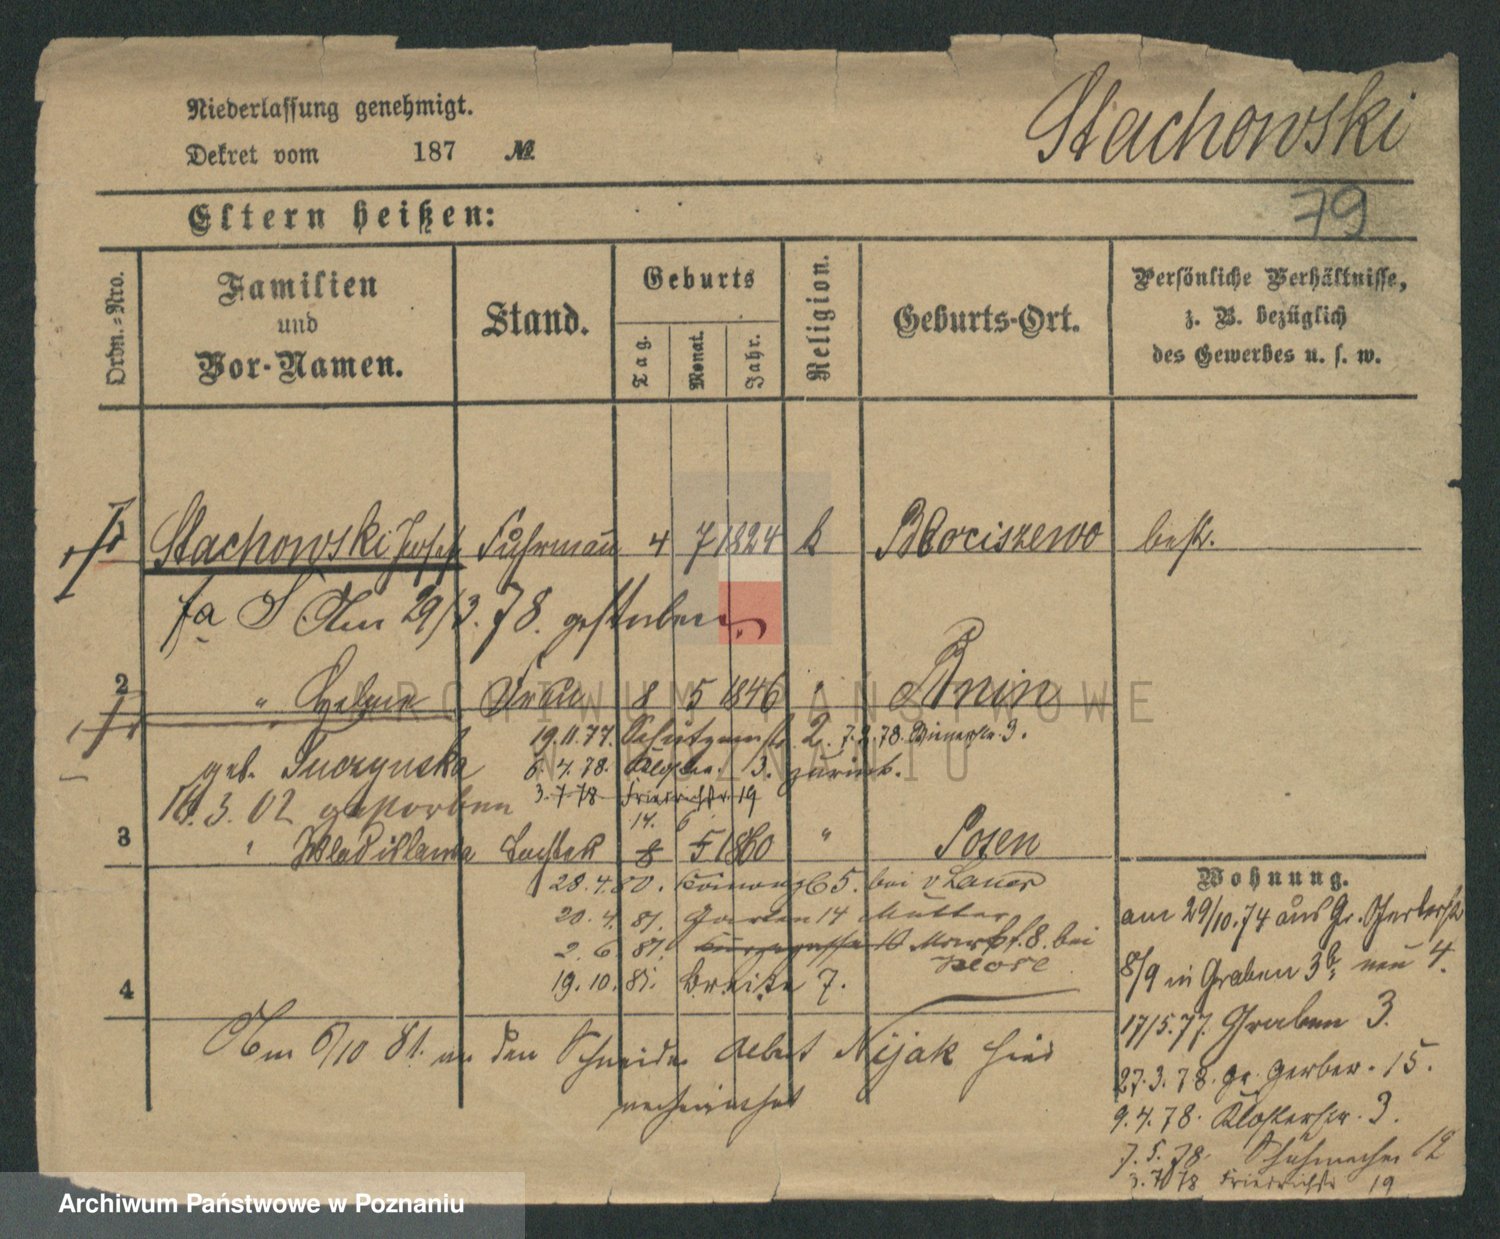 Niederlassung genehmigt.
Dekret vom 187 №
Stachowski
79
Eltern heißen:
Ordn.-Nro.
Familien
und
Vor-Namen.
Stand.
Geburts
Tag.
Monat.
Jahr.
Religion.
Geburts-Ort.
Persönliche Verhältnisse,
z. B. bezüglich
des Gewerbes u. s. w.
Stachowski Josef Fuhrmann 4 7 1824 k Blociszewo bestr.
Am 29/3.78. gestorben
2 " Frau 8 5 1846 " Bnin
19.11.77. Schützenstr. 2. 7.2.78. 3.
geb. Suczynska 6.4.78. 3. zurück.
3.7.78 Friedrichstr. 19
16.3.02 gestorben
14. 6
3 " Wladislawa Tochter 8 5 1860 " Posen
28.4.80. 65. bei v Lauer
20.4.81. Garten 14 Mutter
2.6.81. 10 Markt. 8. bei
19.10.81. Breite 7.
4
Am 6/10 81. an den Schneider Albert Nijak hier
verheirathet
Wohnung.
am 29/10.74 aus Gr. Gerberstr
8/9 in Graben 3b, neu 4.
17/5.77. Graben 3.
27.3.78. gr. Gerber. 15.
9.4.78. Klosterstr. 3.
7.5.78. Schuhmacher 12
3.7.78 Friedrichstr 19
ARCHIWUM PAŃSTWOWE
W POZNANIU
Archiwum Państwowe w Poznaniu